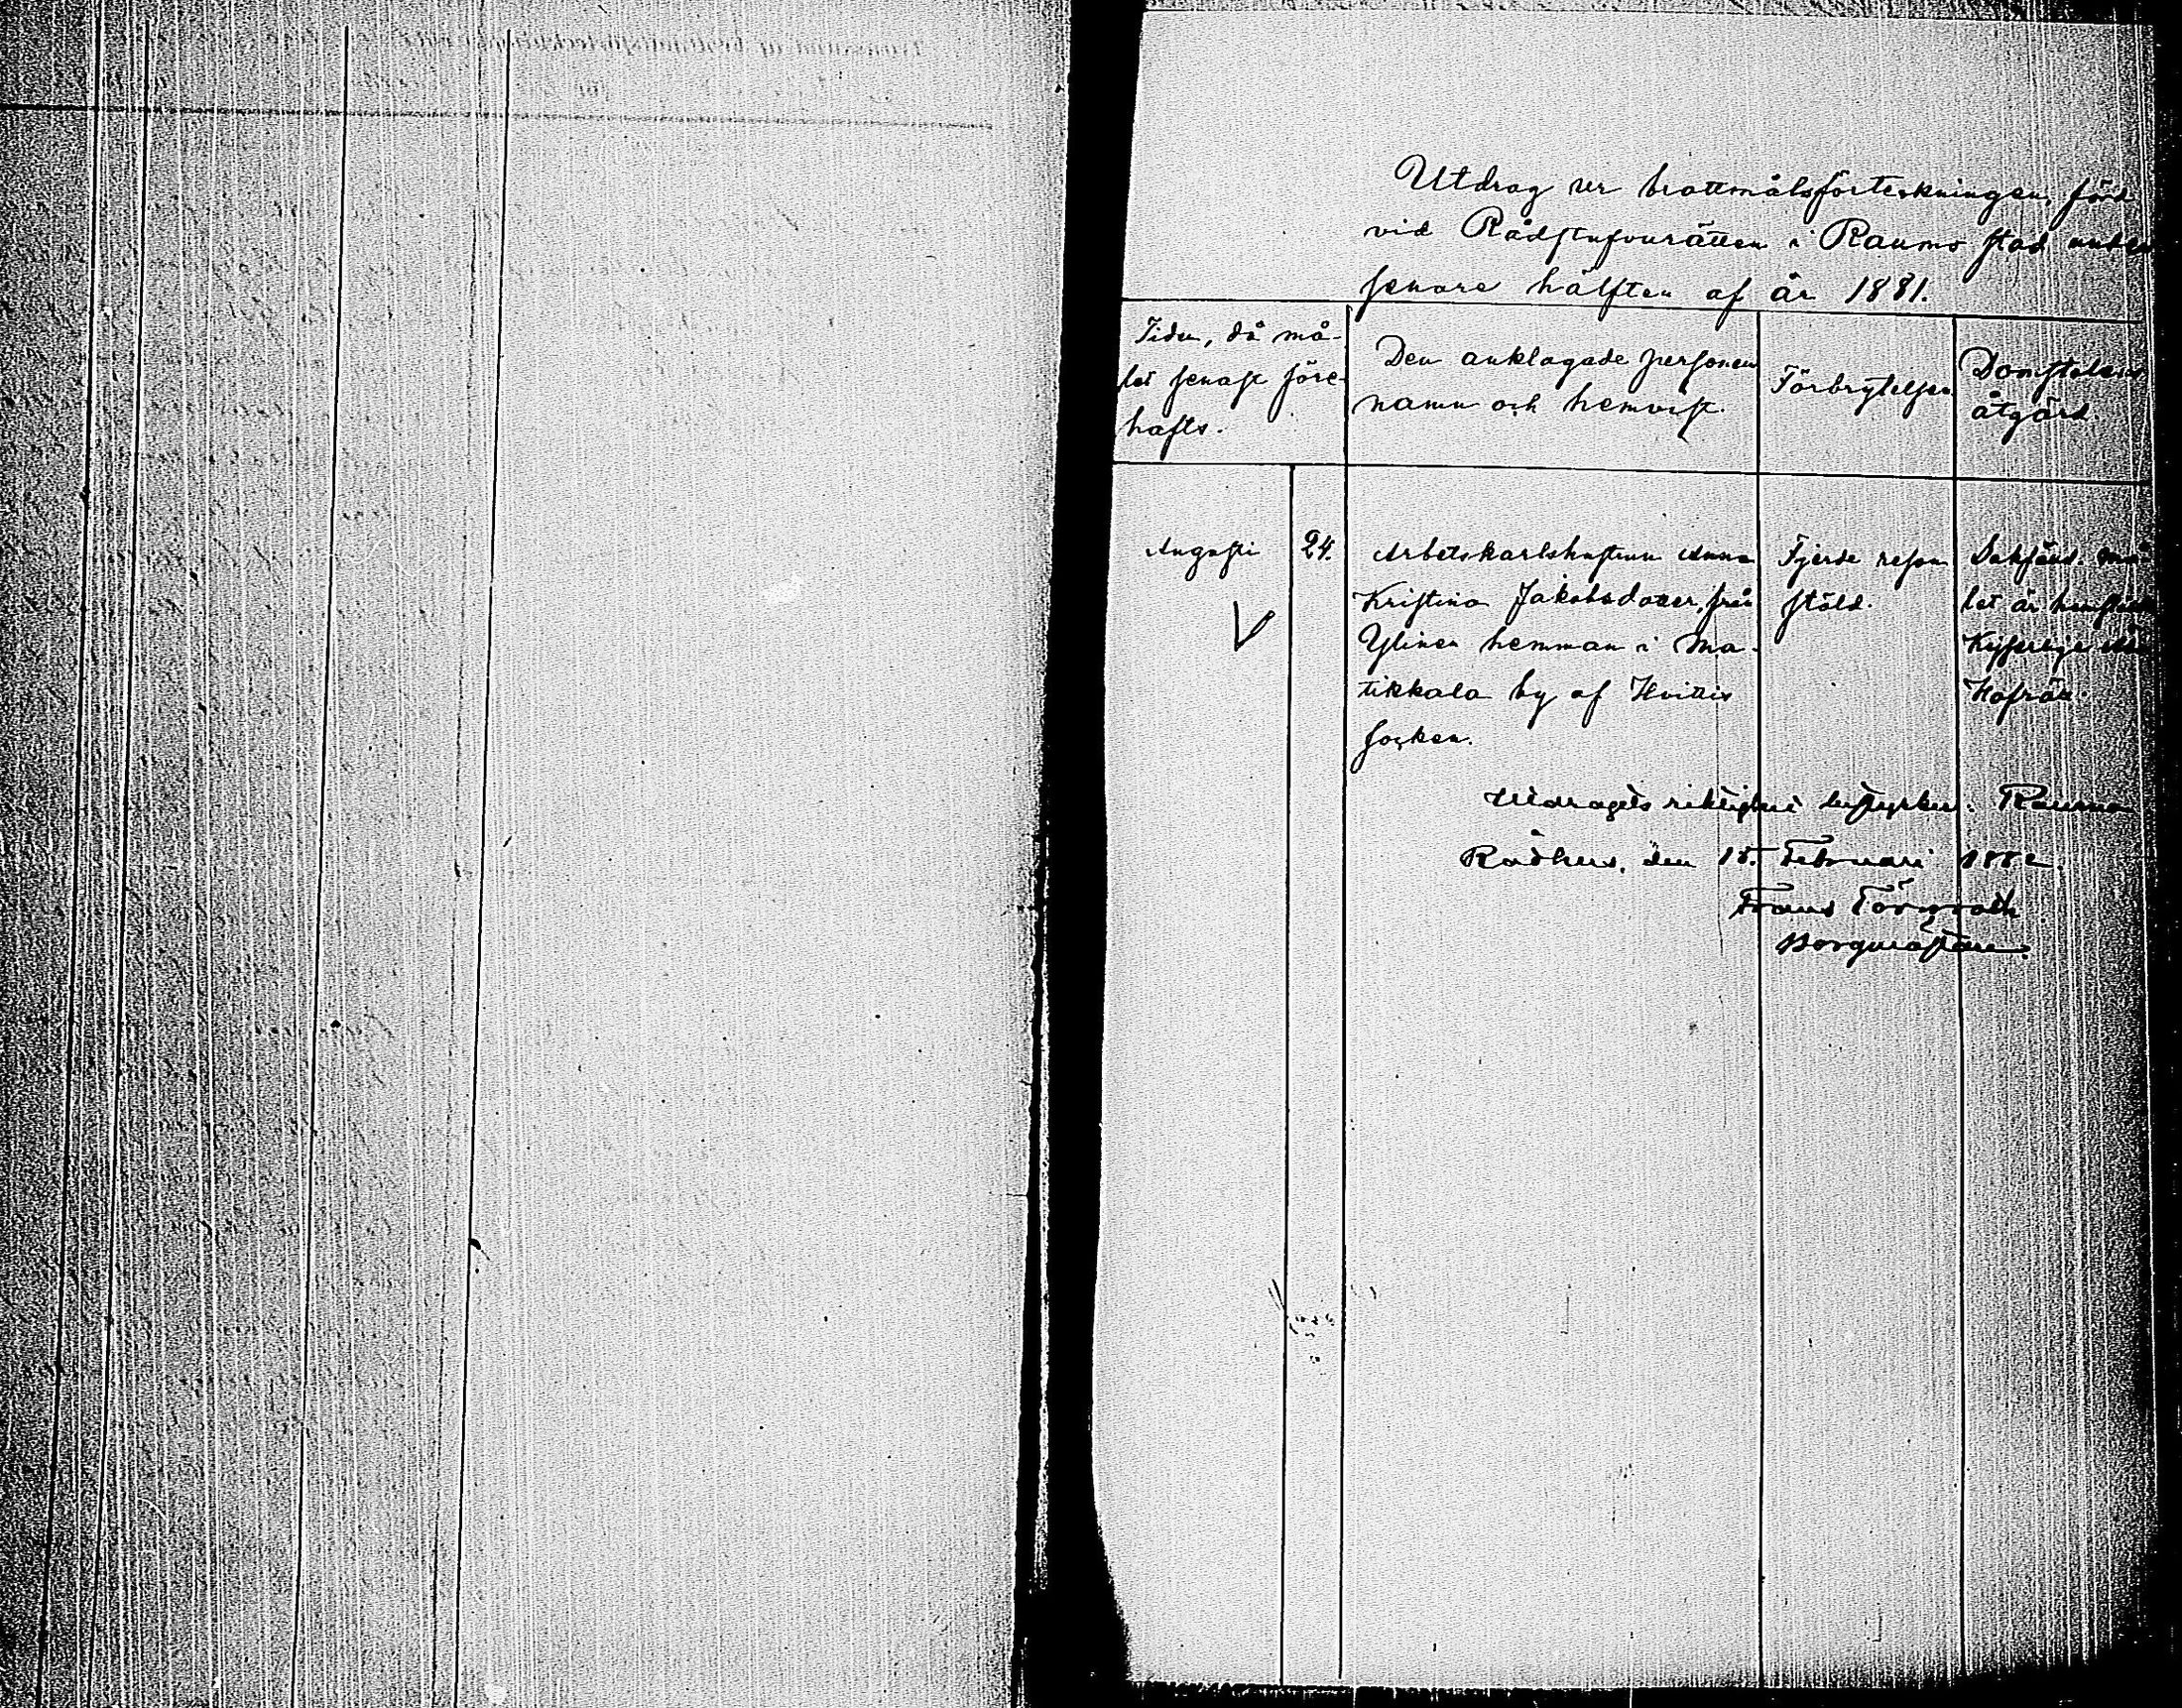 Utdrag ur brottmålsförteckningen, förd
vid Rådstufvurätten i Raumo stad under
senare hälften af år 1881.
Tiden, då må-
let senast före-
hafts.
Den anklagade personens
namn och hemvist.
Förbrytelsen
Domstolens
åtgärd.
Augusti 24.
Arbetskarlshustrun Anna
Kristina Jakobsdotter, från
Ylinen hemman i Ma-
tikkala by af Hvittis
socken.
Fjerde resan
stöld.
Sakfäld. må
let är hemstäldt
Kejserliga Åbo
Hofrätt.
Utdragets riktighet bestyrker. Raumo
Rådhus, den 15. Februari 1882.
Frans Törnroth
Borgmästare.